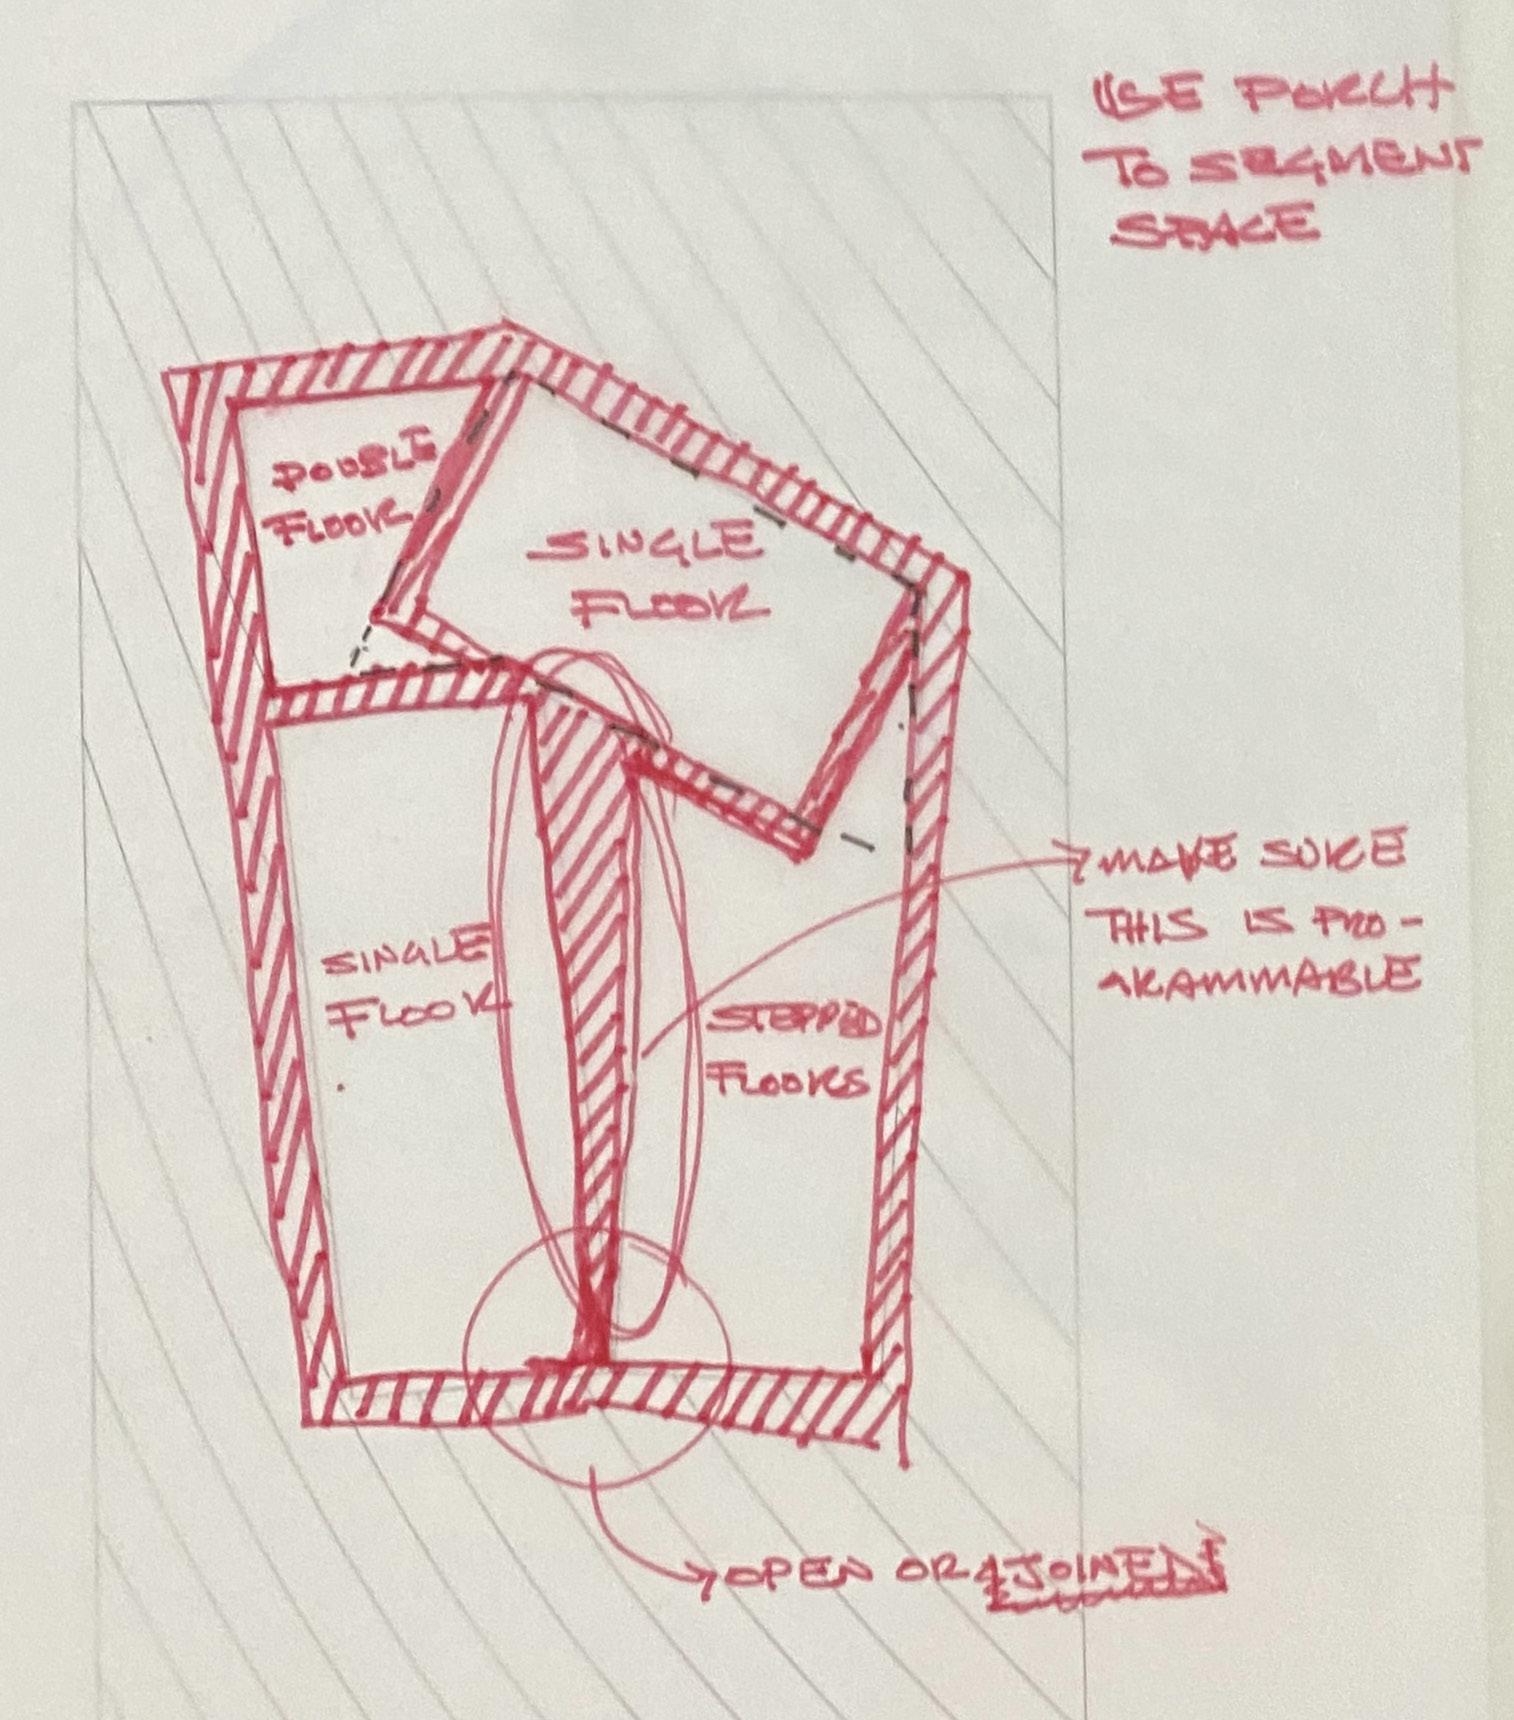 USE PORCH
TO SEGMENT
SPACE
DOUBLE
FLOOR
SINGLE
FLOOR
MAKE SURE
THIS IS PRO-
GRAMMABLE
SINGLE
FLOOR
STEPPED
FLOORS
OPEN OR JOINED